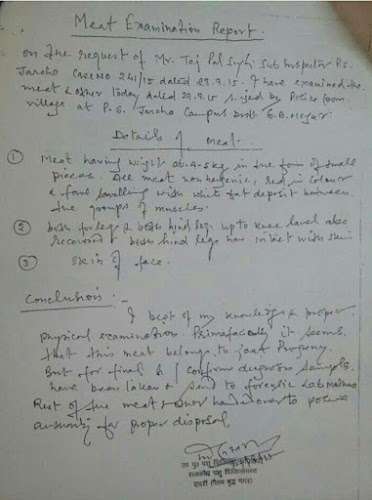 Meat Examination Report.
on the request of Mr. Tej Pal Singh Sub Inspector P.S.
Jarcha Case No 241/15 dated 29.9.15. I have examined the
meat & other today dated 29.9.15 by Police from
village at P.S. Jarcha Campus Distt G.B. Nagar
Details of Meat.
① Meat having weight at 4-5 kg in the form of small
pieces. All meat red in colour
& foul smelling with white fat deposit between
the groups of muscles.
② both forlegs & both hind legs up to knee level also
recovered & both hind legs has intact with skin
③ Skin of face.
Conclusion:-
I best of my knowledge & proper
physical examination Primafacely it seems
that this meat belongs to goat Progeny.
But for final & confirm diagnosis sample
have been taken & send to forensic Lab Mathura
Rest of the meat & other handed over to police
authority for proper disposal
उप मुख्य पशु चिकित्साधिकारी
राजकीय पशु चिकित्सालय
दादरी (गौतम बुद्ध नगर)